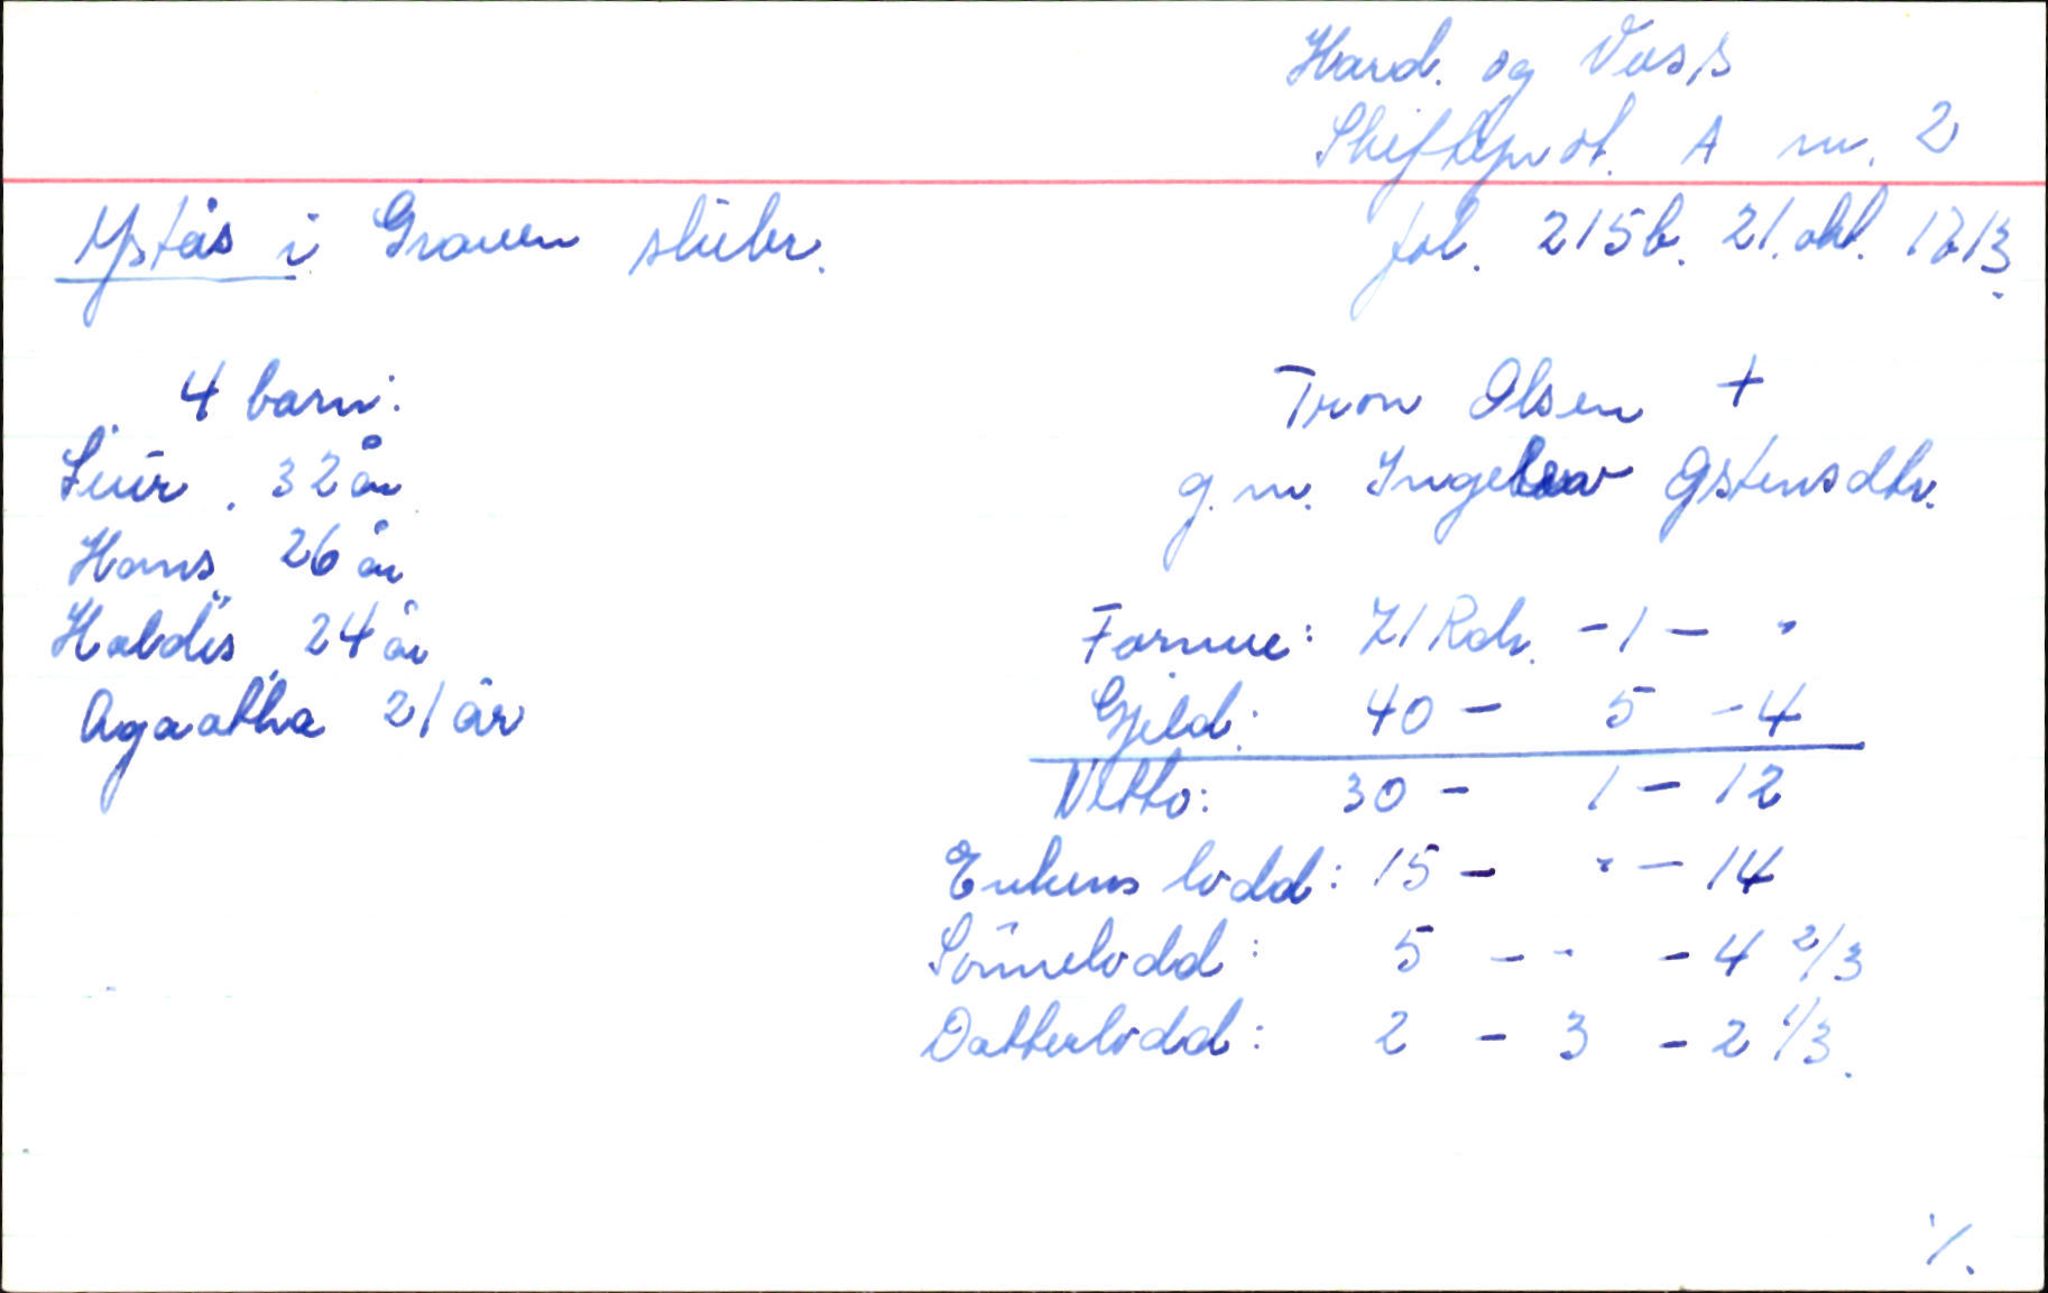 Hard. og Voss
Skifteprot. A nr. 2
Ystås i Graven skibr. fol. 215b. 21. okt. 1713.
4 barn:
Siur. 32 år
Hans 26 år
Holdis 24 år
Agaatha 21 år
Tron Olsen +
g.m. Ingebor Østensdtr.
Formue: 71 Rdr. - 1 - "
Gjeld: 40 - 5 - 4
Netto: 30 - 1 - 12
Enkens lodd: 15 - " - 14
Sönnelodd: 5 - " - 4 2/3
Datterlodd: 2 - 3 - 2 1/3.